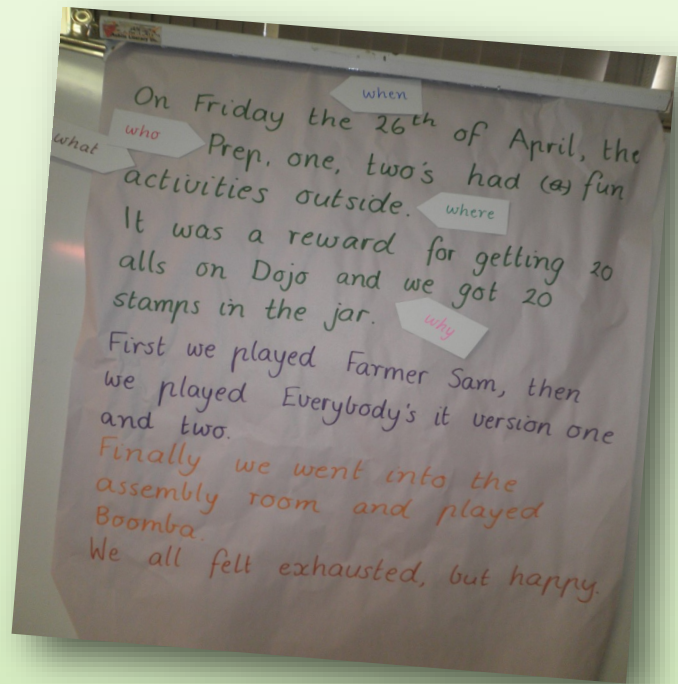 when
On Friday the 26th of April, the
who
what
Prep, one, two's had (a) fun
activities outside.
where
It was a reward for getting 20
alls on Dojo and we got 20
stamps in the jar.
why
First we played Farmer Sam, then
we played Everybody's it version one
and two.
Finally we went into the
assembly room and played
Boomba.
We all felt exhausted, but happy.